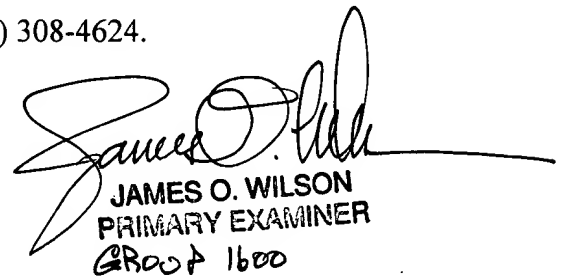 ) 308-4624.
James O. Wilson
JAMES O. WILSON
PRIMARY EXAMINER
GROUP 1600